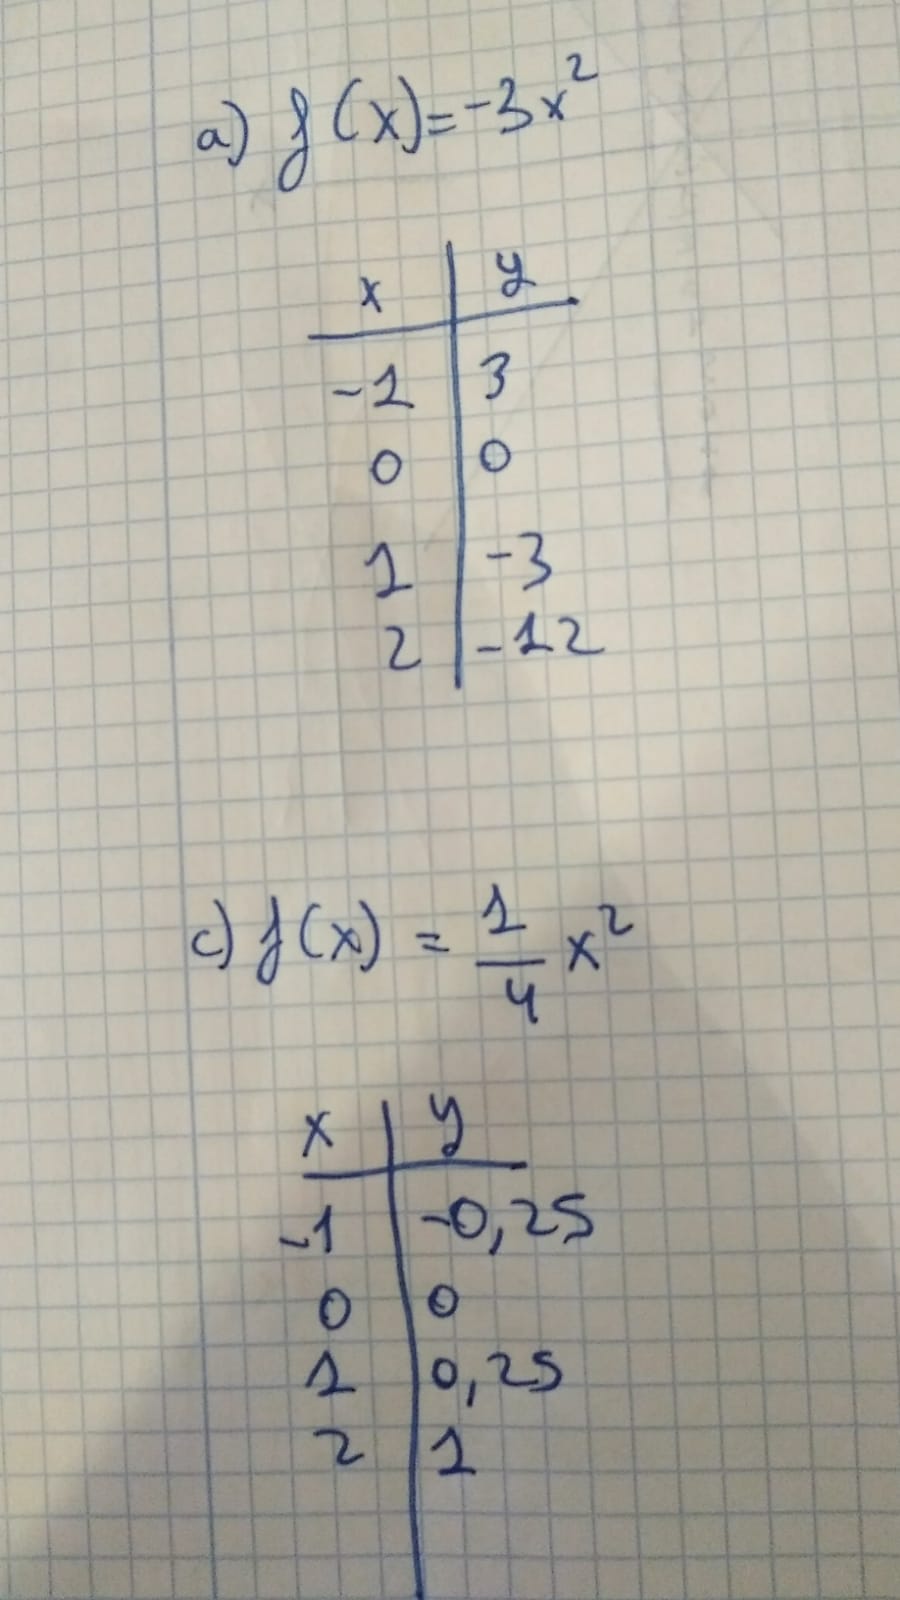 a) f(x)=-3x²
x y
-1 3
0 0
1 -3
2 -12
c) f(x) = 1/4 x²
x y
-1 -0,25
0 0
1 0,25
2 1